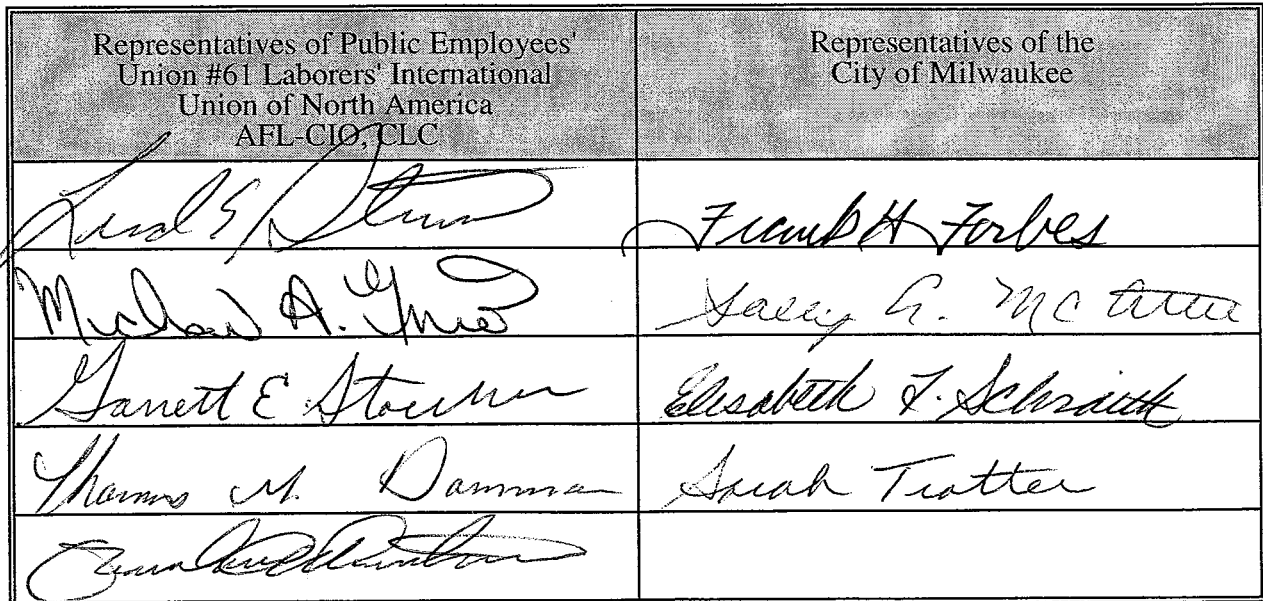 Representatives of Public Employees'
Union #61 Laborers' International
Union of North America
AFL-CIO, CLC
Representatives of the
City of Milwaukee
Frank H Forbes
Michael A.
Sally A. Mc
Garrett E
Elisabeth F. Schraith
Thomas M. Damman
Sarah Trotter